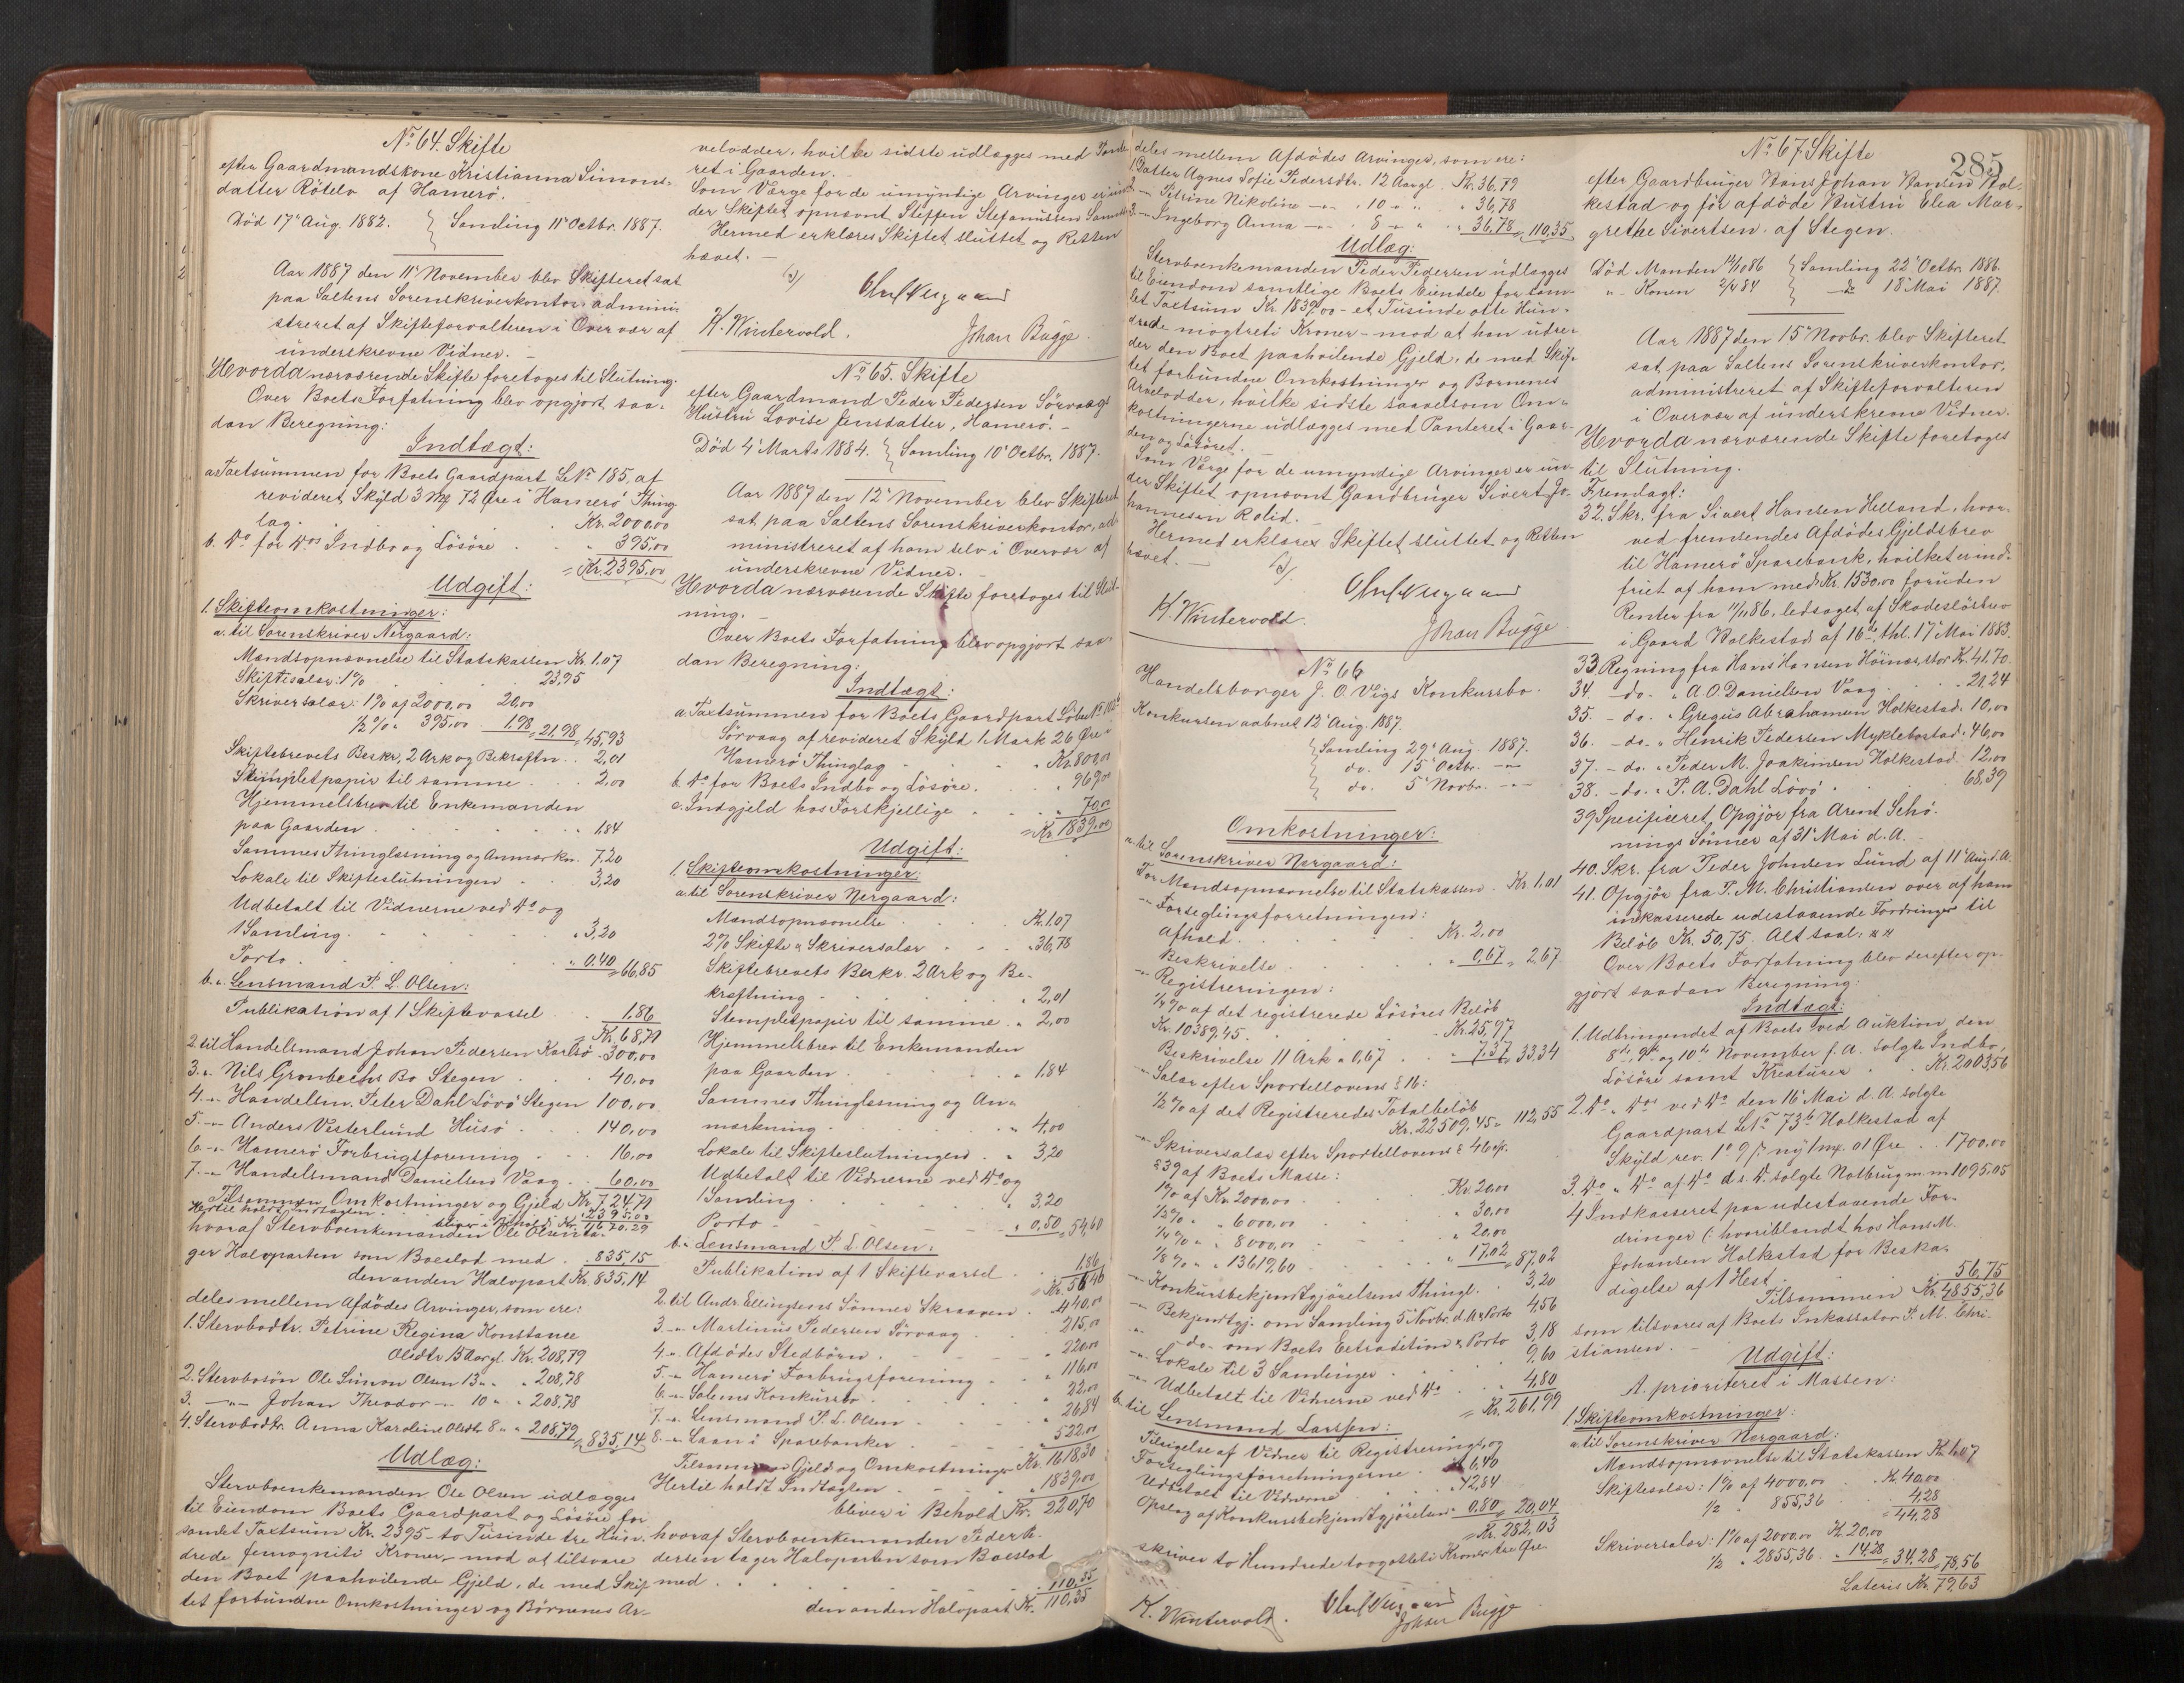 No 64. Skifte
efter Gaardmandskone Kristianna Simons-
datter Röteln af Hamerø.
Död 17' Aug. 1882. } Samling 11' Octbr. 1887.
Aar 1887 den 11' November blev Skifteret sat
paa Saltens Sorenskriverkontor, admini-
streret af Skifteforvalteren i Overvær af
underskrevne Vidner. –
Hvorda nærværende Skifte foretoges til Slutning.
Over Boets Forfatning blev opgjort saa-
dan Beregning:
Indtægt:
a. Taxtsummen for Boets Gaardpart LNo 185, af
revideret Skyld 3 Mk 72 Øre i Hamerö Thing
lag. Kr. 2000,00
b. Do for Dos Indbo og Lösöre „ 395,00
= Kr. 2395,00
Udgift:
1. Skifteomkostninger:
a. til Sorenskriver Nergaard:
Mandsopnævnelse til Statskassen Kr. 1.07
Skiftesalær: 1% 23,95
Skriversalær: 1% af 2000,00 20,00
½% „ 395,00 1,98 = 21,98 = 45,93
Skiftebrevets Beskr., 2 Ark og Bekræftn. 2,01
Stempletpapir til samme 2,00
Hjemmelsbrev til Enkemanden
paa Gaarden „ 1,84
Sammes Thinglæsning og Anmærkn. 7,20
Lokale til Skifteslutningen 3,20
Udbetalt til Vidnerne ved Do og
1 Samling „ 3,20
Porto „ 0,40 = 66,85
b. „ Lensmand P. L. Olsen:
Publikation af 1 Skiftevarsel 1,86
= Kr. 68,71
2. til Handelsmand Johan Pedersen Karlsö „ 300,00
3. „ Nils Grønbechs Bo Stegen 40,00
4. „ Handelsm. Peter Dahl Lövö Stegen 100,00
5. „ Anders Vesterlund Husö 140,00
6. „ Hamerö Forbrugsforening 16,00
7. „ Handelsmand Danielsen Vaag 60,00
Tilsammen Omkostninger og Gjeld Kr. 724,71
Hertil holdt Indtægten 2395,00
bliver i Behold Kr. 1670,29
hvoraf Stervboenkemanden Ole Olsen ta-
ger Halvparten som Boeslod med 835,15
den anden Halvpart Kr. 835,14
deles mellem Afdödes Arvinger, som ere:
1. Stervbodtr. Petrine Regina Konstance
Olsdtr 15 Aargl. Kr. 208,79
2. Stervbosön Ole Simon Olsen 13 „ „ 208,78
3. – „ – Johan Theodor – „ 10 „ „ 208.78
4. Stervbodtr. Anna Karoline Olsdtr 8 „ „ 208,79 = 835,14
Udlæg:
Stervboenkemanden Ole Olsen udlægges
til Eiendom Boets Gaardpart og Lösöre for
samlet Taxtsum Kr. 2395 – to Tusinde tre Hun-
drede femognitti Kroner – mod at tilsvare
den Boet paahvilende Gjeld, de med Skif-
tet forbundne Omkostninger og Börnenes Ar-
velodder, hvilke sidste udlægges med Pante-
ret i Gaarden.
Som Værge for de umyndige Arvinger er un-
der Skiftet opnævnt Steffen Stefanussen
Hermed erklæres Skiftet sluttet og Retten
hævet. –
K. Wintervold. Johan Bugge.
No 65. Skifte
efter Gaardmand Peder Pedersen Sörvaags
Hustru Lovise Jensdatter, Hamerö. –
Död 4' Marts 1884. } Samling 10' Octbr. 1887.
Aar 1887 den 12' November blev Skifteret
sat paa Saltens Sorenskriverkontor, ad-
ministreret af ham selv i Overvær af
underskrevne Vidner. –
Hvorda nærværende Skifte foretoges til Slut-
ning. –
Over Boets Forfatning blev opgjort saa-
dan Beregning:
Indtægt:
a. Taxtsummen for Boets Gaardpart Löbe No
Sörvaag af revideret Skyld 1 Mark 26 Øre i
Hamerö Thinglag Kr. 800,00
b. Do for Boets Indbo og Lösöre. „ 969,00
c. Indgjeld hos Forskjellige 70,00
= Kr. 1839,00
Udgift:
1. Skifteomkostninger:
a. til Sorenskriver Nergaard:
Mandsopnævnelse Kr. 1.07
2% Skifte & Skriversalær „ 36,78
Skiftebrevets Beskr. 2 Ark og Be-
kræftning „ 2,01
Stempletpapir til samme „ 2,00
Hjemmelsbrev til Enkemanden
paa Gaarden „ 1,84
Sammes Thinglæsning og An-
mærkning „ 4,00
Lokale til Skifteslutningen „ 3,20
Udbetalt til Vidnerne ved Do og
1 Samling „ 3,20
Porto „ 0,50 = 54,60
b. „ Lensmand P. L. Olsen:
Publikation af 1 Skiftevarsel 1,86
= Kr. 56,46
2. til Andr. Ellingsens Sönner Skraaven 440,00
3. „ Martinus Pedersen Sörvaag 215,00
4. „ Afdödes Stedbörn 220,00
5. „ Hamerö Forbrugsforening 116,00
6. „ Salens Konkursbo 22,00
7. „ Lensmand P. L. Olsen 26,84
8. „ Laan i Sparebanken 522,00
Tilsammen Gjeld og Omkostninger Kr. 1618,30
Hertil holdt Indtægten 1839,00
bliver i Behold Kr. 220,70
hvoraf Stervboenkemanden Peder Pe-
dersen tager Halvparten som Boeslod
med 110,35
den anden Halvpart Kr. 110,35
deles mellem Afdödes Arvinger, som ere:
1. Datter Agnes Sofie Pedersdtr. 12 Aargl. Kr. 36,79
2. – „ Petrine Nikoline – „ – 10 „ „ 36,78
3. – „ Ingeborg Anna – „ – 8 „ „ 36,78 = 110,35
Udlæg:
Stervboenkemanden Peder Pedersen udlægges
til Eiendom samtlige Boets Eiendele for sam-
let Taxtsum Kr. 1839,00 – et Tusinde otte Hun-
drede niogtreti Kroner – mod at han udre-
der den Boet paahvilende Gjeld, de med Skif-
tet forbundne Omkostninger og Børnenes
Arvelodder, hvilke sidste saavelsom Om-
kostningerne udlægges med Panteret i Gaar-
den og Lösöret.
Som Værge for de umyndige Arvinger er un-
der Skiftet opnævnt Gaardbruger Sivert Jo-
hannesen Rolid. –
Hermed erklæres Skiftet sluttet og Retten
hævet. –
K. Wintervold. Johan Bugge.
No 66
Handelsborger J. O. Vigs Konkursbo.
Konkursen aabnet 12' Aug. 1887.
} Samling 29' Aug. 1887.
} do. 15' Octbr. – „ –
} do. 5' Novbr. – „ –
Omkostninger:
a. til Sorenskriver Nergaard:
For Mandsopnævnelse til Statskassen Kr. 1.01
„ Forseglingsforretningen:
Afhold Kr. 2,00
Beskrivelse „ 0,67 = 2,67
„ Registreringen:
¼% af det registrerede Lösöres Belöb
Kr. 10389,45 Kr. 25,97
Beskrivelse 11 Ark à 0,67 „ 7,37 = 33,34
„ Salær efter Sportellovens § 16:
½% af det Registreredes Totalbelöb
Kr. 22509,45 = 112,55
„ Skriversalær efter Sportellovens § 46 cfr.
§ 39 af Boets Masse:
1% af Kr. 2000,00 Kr. 20,00
½% „ „ 6000,00 „ 30,00
¼% „ „ 8000,00 „ 20,00
⅛% „ „ 13619,60 „ 17,02 = 87,02
„ Konkursbekjendtgjörelsens Thingl. 3,20
„ Bekjendtgj. om Samling 5' Novbr. d. A. & Porto 4,56
„ – do – om Boets Extradition & Porto 3,18
„ Lokale til 3 Samlinger 9,60
„ Udbetalt til Vidnerne ved Do 4,80
= Kr. 261,99
b. til Lensmand Larssen:
Tilsigelse af Vidner til Registrerings og
Forseglingsforretningerne 6,40
Udbetalt til Vidnerne 12,84
Opslag af Konkursbekjendtgjörelsen 0,80 = 20,04
= Kr. 282,03
skriver to Hundrede toogotteti Kroner tre Øre.
K. Wintervold. Johan Bugge
285
No 67. Skifte
efter Gaardbruger Hans Johan Hansen Hol-
kestad og för afdöde Hustru Elea Mar-
grethe Sivertsen, af Stegen.
Död Manden 14/10 86 } Samling 22' Octbr. 1886.
„ – Konen 2/4 84 } – do – 18' Mai 1887.
Aar 1887 den 15' Novbr. blev Skifteret
sat paa Saltens Sorenskriverkontor,
administreret af Skifteforvalteren
i Overvær af underskrevne Vidner.
Hvorda nærværende Skifte foretoges
til Slutning.
Fremlagt:
32. Skr. fra Sivert Hansen Helland, hvor-
ved fremsendes Afdödes Gjeldsbrev
til Hamerö Sparebank, hvilket er ind-
friet af ham med Kr. 1530,00 foruden
Renter fra 11/11 86, ledsaget af Skadeslösbrev
i Gaard Holkestad af 16de, thl. 17' Mai 1883.
33. Regning fra Hans Hansen Höines, stor K. 41.70.
34. – do. „ A. O. Danielsen Vaag „ 21,24
35. – do. „ Gregus Abrahamsen Holkestad „ 10,00
36. – do. „ Henrik Pedersen Myklebostad „ 46,00
37. – do. „ Peder M. Joakimsen Holkestad „ 12,00
38. – do. „ P. A. Dahl Lövö 68,39
39. Specificeret Opgjör fra Arent Schö-
nings Sönner af 31' Mai d. A.
40. Skr. fra Peder Johnsen Lund af 11' Aug. d. A.
41. Opgjör fra P. M. Christiansen over af ham
inkasserede udestaaende Fordringer til
Belöb Kr. 50,75. Alt saal:
Over Boets Forfatning blev derefter op-
gjort saadan Beregning:
Indtægt:
1. Udbringendet af Boets ved Auktion den
8de, 9de og 10de November f. A. solgte Indbo,
Lösöre samt Kreaturer Kr. 2003,56
2. Do „ Dos ved Do den 16' Mai d. A. solgte
Gaardpart LNo 73b Holkestad af
Skyld rev. ny 1 Mk. 01 Øre 1700,00
3. Do „ Do af Do d. s. D. solgte Notbrug m. m. 1095,05
4. Indkasseret paa udestaaende For-
dringer (: hvoriblandt hos Hans M.
Johansen Holkestad for Beska-
digelse af 1 Hest 56,75
Tilsammen Kr. 4855,36
som tilsvares af Boets Inkassator P. M. Chri-
stiansen. –
Udgift:
A. prioriteret i Massen:
1. Skifteomkostninger:
a. til Sorenskriver Nergaard:
Mandsopnævnelse til Statskassen Kr. 1,07
Skiftesalær: 1% af 4000,00 K. 40,00
½ „ 855,36 4,28
= 44,28
Skriversalær: 1% af 2000,00 K. 20,00
½ „ 2855,36 14,28 = 34,28 = 78,56
Lateris Kr. 79,63